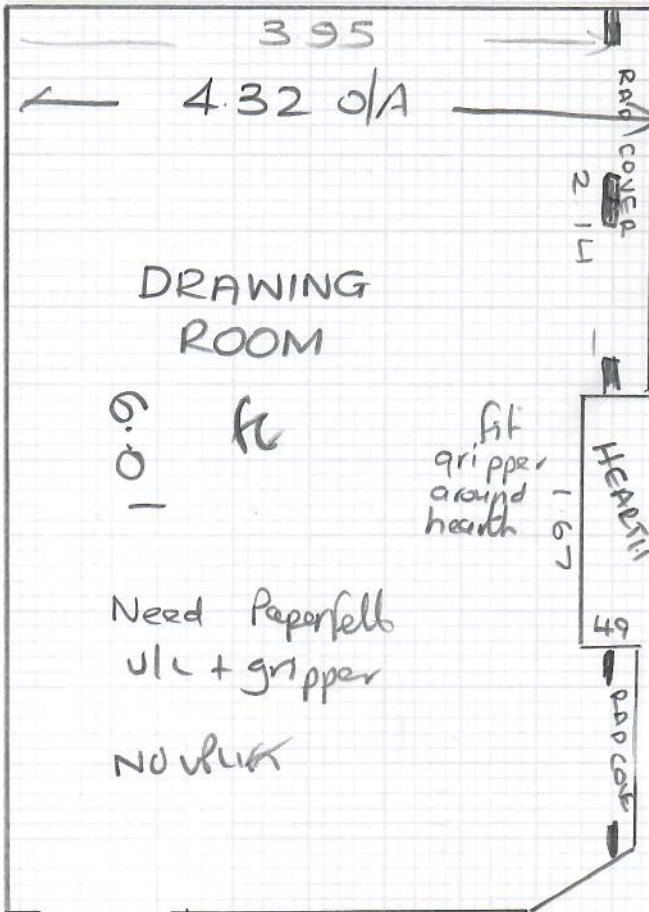 3 95
4.32 O/A
RAD COVER
2.14
DRAWING
ROOM
6.01
fit
gripper
around
hearth
1.67
HEARTH
49
Need Paperfelt
U/L + gripper
NO UPLIFT
RAD COVE